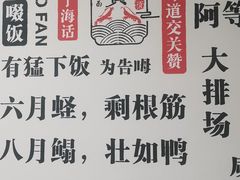 啜饭
O FAN
宁海话
道交关赞
阿等
有猛下饭
为告呣
大排场
六月蛏，剩根筋
八月鳎，壮如鸭